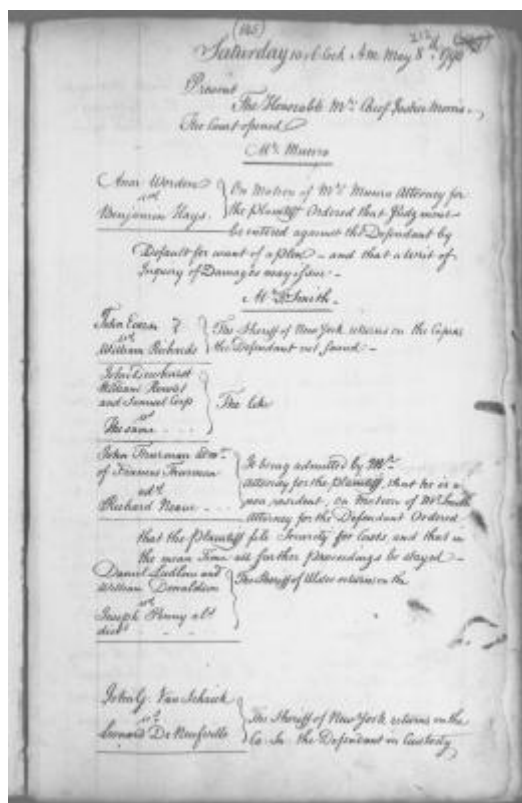 (145)
212
Saturday 10 o'Clock A.M. May 8th
Present
The Honorable Mr. Chief Justice Morris.
The Court opened
Mr. Munro
Ann Worden
vs
Benjamin Hays.
On Motion of Mr. Munro Attorney for
the Plaintiff Ordered that Judgment
be entered against the Defendant by
Default for want of a plea - and that a Writ of
Inquiry of Damages may issue -
Mr. Smith.
John
vs
William Richards
The Sheriff of New York returns on the Capias
the Defendant not found -
John
William
and Samuel Corp
vs
The same
The like
John Thurman
of Francis Thurman
ads
Richard
It being admitted by
Attorney for the Plaintiff, that he is a
non resident, on Motion of Mr. Smith
Attorney for the Defendant Ordered
that the Plaintiff file Security for Costs, and that in
the mean Time all further Proceedings be stayed -
Daniel Ludlow and
William Donaldson
vs
Joseph Penny
The Sheriff of Ulster returns on the
John G. Van Schaick
vs
Leonard De Neufville
The Sheriff of New York returns on the
Ca. Sa. the Defendant in Custody